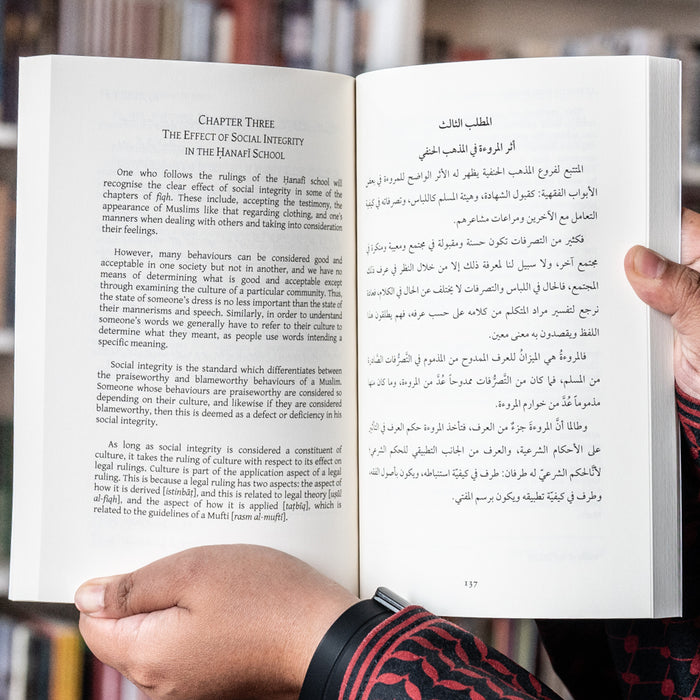 CHAPTER THREE
THE EFFECT OF SOCIAL INTEGRITY
IN THE ḤANAFĪ SCHOOL
One who follows the rulings of the Ḥanafī school will
recognise the clear effect of social integrity in some of the
chapters of fiqh. These include, accepting the testimony, the
appearance of Muslims like that regarding clothing, and one's
manners when dealing with others and taking into consideration
their feelings.
However, many behaviours can be considered good and
acceptable in one society but not in another, and we have no
means of determining what is good and acceptable except
through examining the culture of a particular community. Thus,
the state of someone's dress is no less important than the state of
their mannerisms and speech. Similarly, in order to understand
someone's words we generally have to refer to their culture to
determine what they meant, as people use words intending a
specific meaning.
Social integrity is the standard which differentiates between
the praiseworthy and blameworthy behaviours of a Muslim.
Someone whose behaviours are praiseworthy are considered so
depending on their culture, and likewise if they are considered
blameworthy, then this is deemed as a defect or deficiency in his
social integrity.
As long as social integrity is considered a constituent of
culture, it takes the ruling of culture with respect to its effect on
legal rulings. Culture is part of the application aspect of a legal
ruling. This is because a legal ruling has two aspects: the aspect of
how it is derived [istinbāṭ], and this is related to legal theory [uṣūl
al-fiqh], and the aspect of how it is applied [taṭbīq], which is
related to the guidelines of a Mufti [rasm al-muftī].
المطلب الثالث
أثر المروءة في المذهب الحنفي
المتتبع لفروع المذهب الحنفية يظهر له الأثر الواضح للمروءة في بعض
الأبواب الفقهية: كقبول الشهادة، وهيئة المسلم كاللباس، وتصرفاته في كيفية
التعامل مع الآخرين ومراعات مشاعرهم.
فكثير من التصرفات تكون حسنة ومقبولة في مجتمع ومعيبة ومنكرة في
مجتمع آخر، ولا سبيل لنا لمعرفة ذلك إلا من خلال النظر في عرف ذلك
المجتمع، فالحال في اللباس والتصرفات لا يختلف عن الحال في الكلام، فعادة
نرجع لتفسير مراد المتكلم من كلامه على حسب عرفه، فهم يطلقون هذا
اللفظ ويقصدون به معنى معين.
فالمروءةُ هي الميزانُ للعرف الممدوح من المذموم في التَّصرُّفات الصَّادرة
من المسلم، فما كان من التَّصرُّفات ممدوحاً عُدَّ من المروءة، وما كان منها
مذموماً عُدَّ من خوارم المروءة.
وطالما أنَّ المروءةَ جزءٌ من العرف، فتأخذ المروءة حكم العرف في التَّأثير
على الأحكام الشرعية، والعرف من الجانب التطبيقي للحكم الشرعي؛
لأنَّالحكم الشرعيّ له طرفان: طرف في كيفيّة استنباطه، ويكون بأصول الفقه،
وطرف في كيفيّة تطبيقه ويكون برسم المفتي.
137